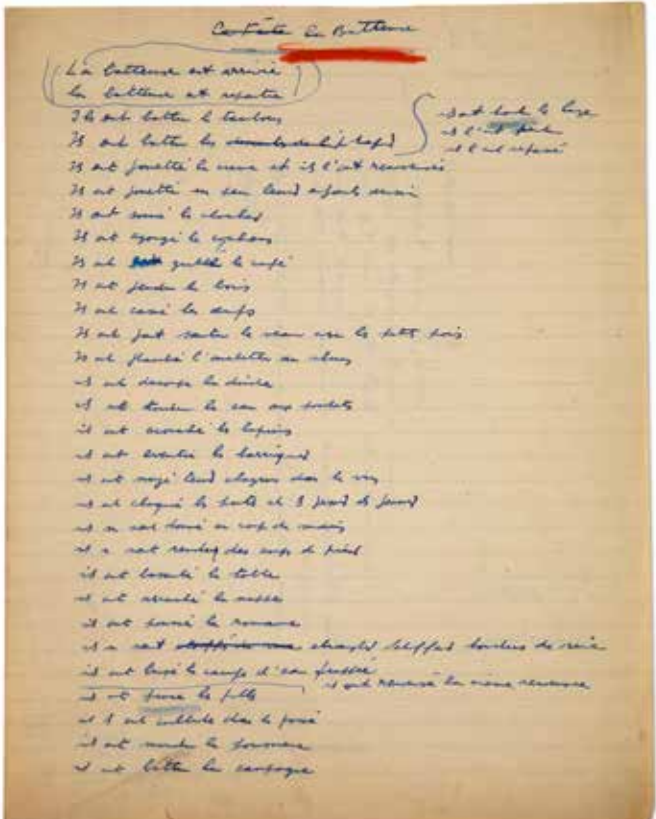 La Batteuse
La batteuse est arrivée
la batteuse est repartie
Ils ont battu le tambour
Ils ont battu les tapis
ils ont tordu le linge
ils l'ont
ils l'ont repassé
Ils ont fouetté la crème et ils l'ont renversée
Ils ont fouetté un peu leurs enfants aussi
Ils ont sonné les cloches
Ils ont égorgé le cochon
Ils ont grillé le café
Ils ont fendu le bois
Ils ont cassé les œufs
Ils ont fait sauter le veau avec les petits pois
Ils ont flambé l'omelette au rhum
ils ont découpé la dinde
ils ont tordu le cou aux poulets
ils ont écorché les lapins
ils ont éventré les barriques
ils ont noyé leurs chagrins dans le vin
ils ont claqué les portes et les fesses des femmes
ils se sont donné un coup de main
ils se sont rendus des coups de pied
ils ont basculé la table
ils ont arraché la nappe
ils ont poussé la romance
ils se sont étranglés étouffés tordus de rire
ils ont brisé la carafe d'eau frappée
ils ont renversé la crème renversée
ils ont pincé les filles
ils les ont culbutées dans le fossé
ils ont mordu la poussière
ils ont battu la campagne